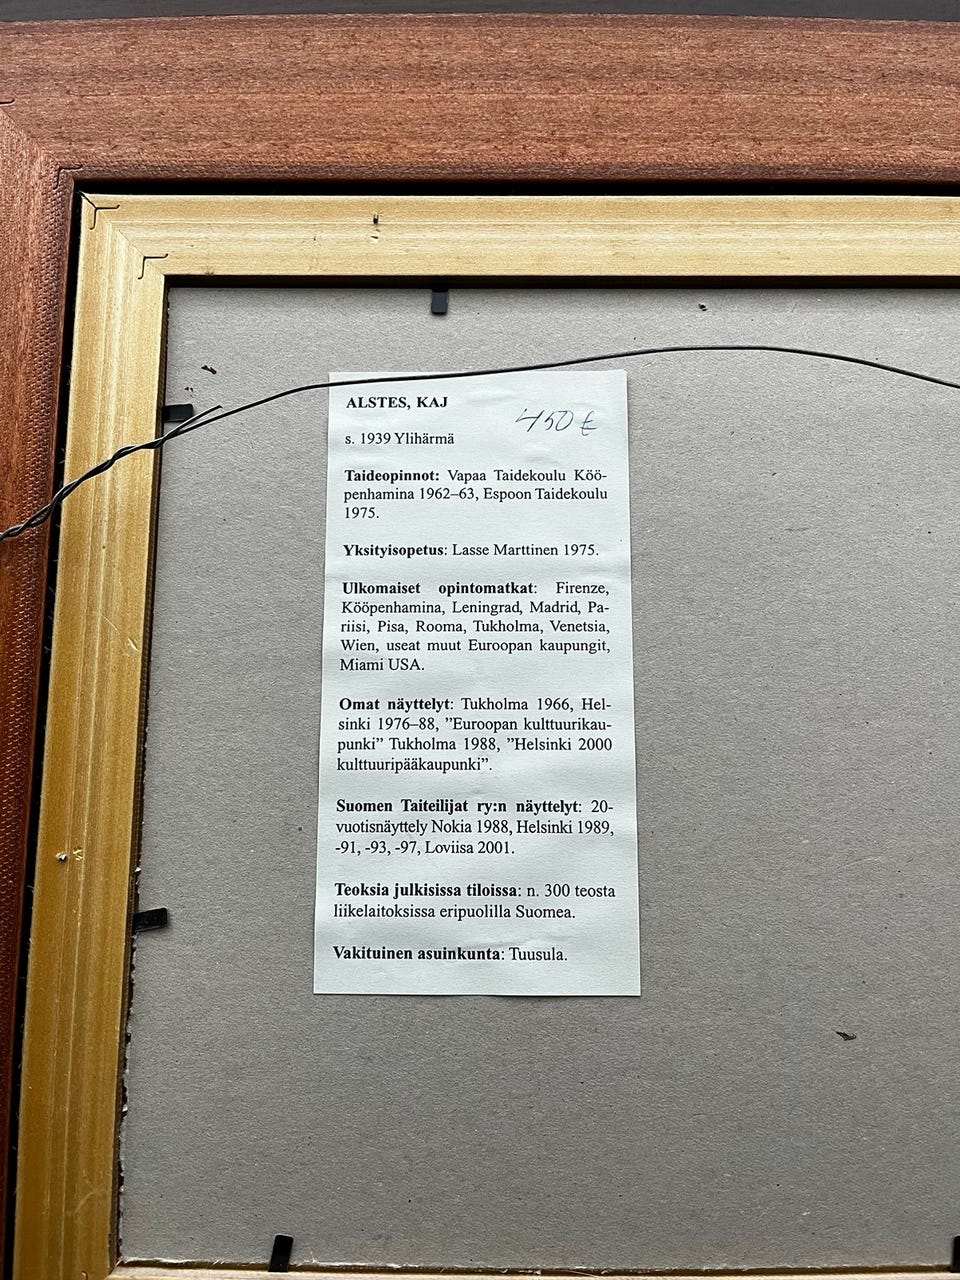 ALSTES, KAJ
450 €
s. 1939 Ylihärmä
Taideopinnot: Vapaa TaidekouluKöö-
penhamina 1962–63, Espoon Taidekoulu
1975.
Yksityisopetus: Lasse Marttinen 1975.
Ulkomaiset opintomatkat: Firenze,
Kööpenhamina, Leningrad, Madrid, Pa-
riisi, Pisa, Rooma, Tukholma, Venetsia,
Wien, useat muut Euroopan kaupungit,
Miami USA.
Omat näyttelyt: Tukholma 1966, Hel-
sinki 1976–88, ”Euroopan kulttuurikau-
punki” Tukholma 1988, ”Helsinki 2000
kulttuuripääkaupunki”.
Suomen Taiteilijat ry:n näyttelyt: 20-
vuotisnäyttely Nokia 1988, Helsinki 1989,
-91, -93, -97, Loviisa 2001.
Teoksia julkisissa tiloissa: n. 300 teosta
liikelaitoksissa eripuolilla Suomea.
Vakituinen asuinkunta: Tuusula.